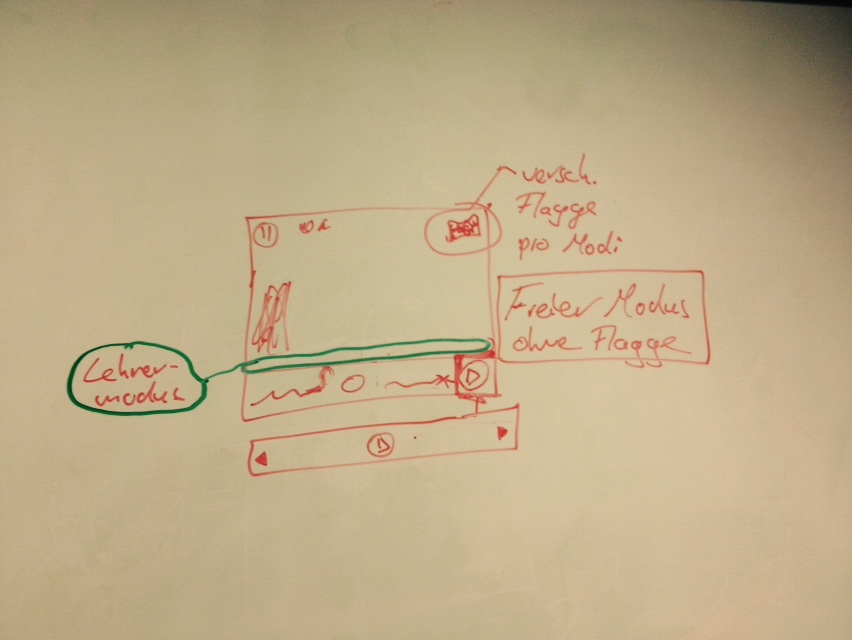 versch.
Flagge
pro Modi
Freier Modus
ohne Flagge
Lehrer-
modus